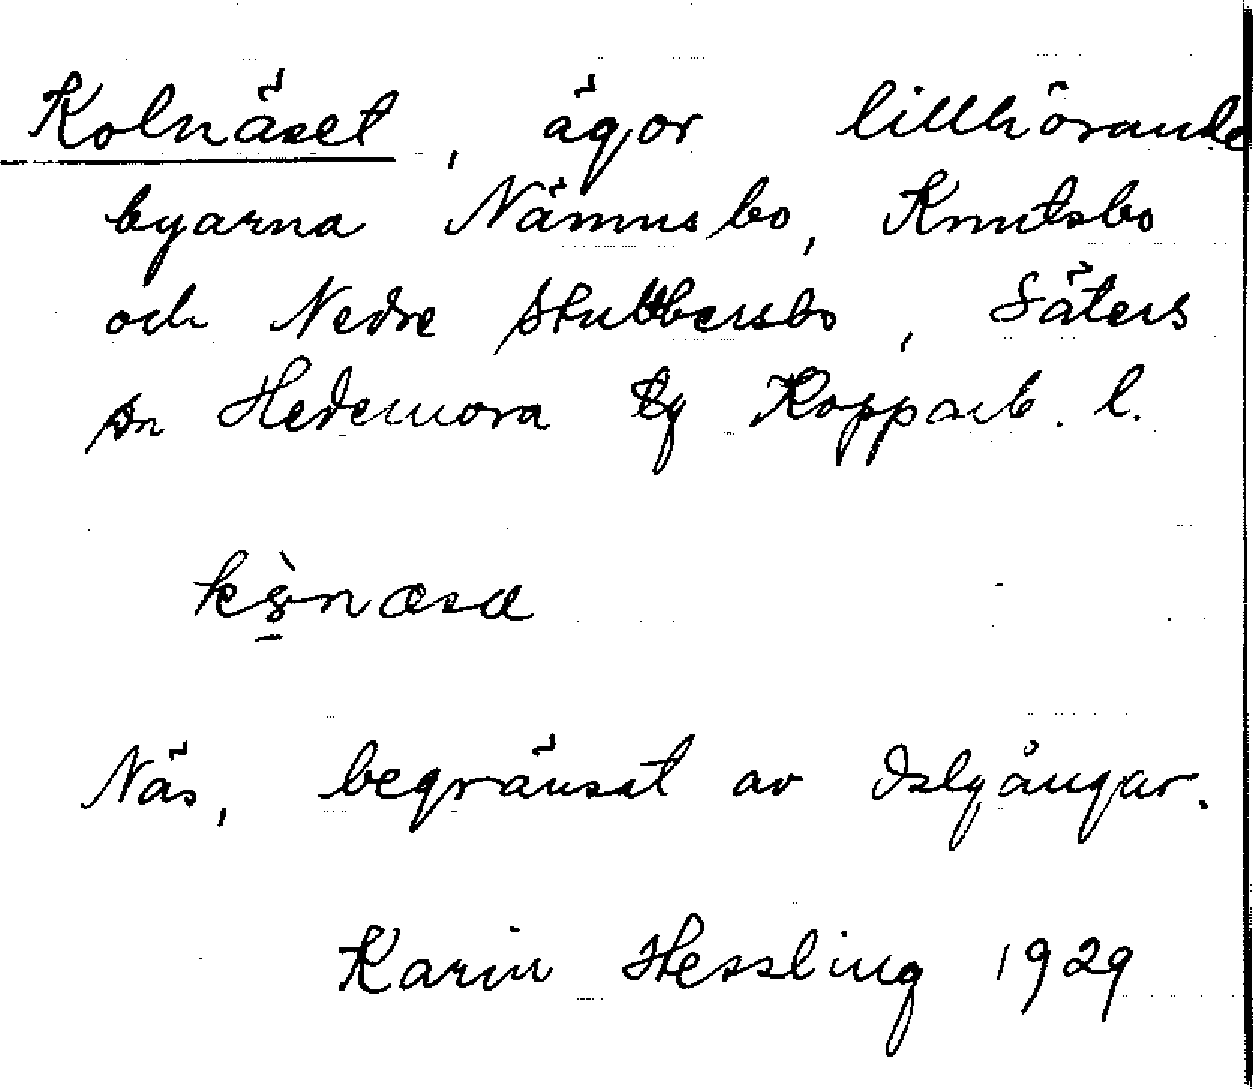 Kolnäset, ägor tillhörande
byarna Nämnsbo, Knutsbo
och Nedre Stubbersbo, Säters
sn Hedemora tg Kopparb. l.
Näs, begränsat av dalgångar.
Karin Hessling 1929